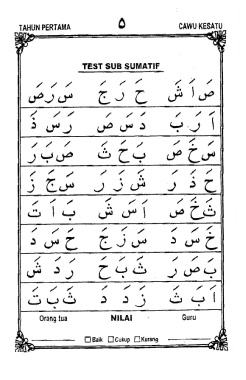 TAHUN PERTAMA ٥ CAWU KESATU
TEST SUB SUMATIF
صَ اَ شَ حَ رَ جَ سَ رَ صَ
اَ رَ بَ دَ سَ صَ رَ سَ ذَ
سَ خَ صَ بَ حَ ثَ صَ بَ رَ
حَ ذَ رَ شَ زَ رَ سَ جَ زَ
ثَ خَ صَ اَ سَ شَ بَ اَ تَ
خَ سَ دَ سَ زَ جَ حَ سَ دَ
بَ صَ رَ ثَ بَ حَ رَ دَ شَ
اَ بَ ثَ زَ دَ دَ ثَ بَ تَ
Orang tua NILAI Guru
Baik Cukup Kurang